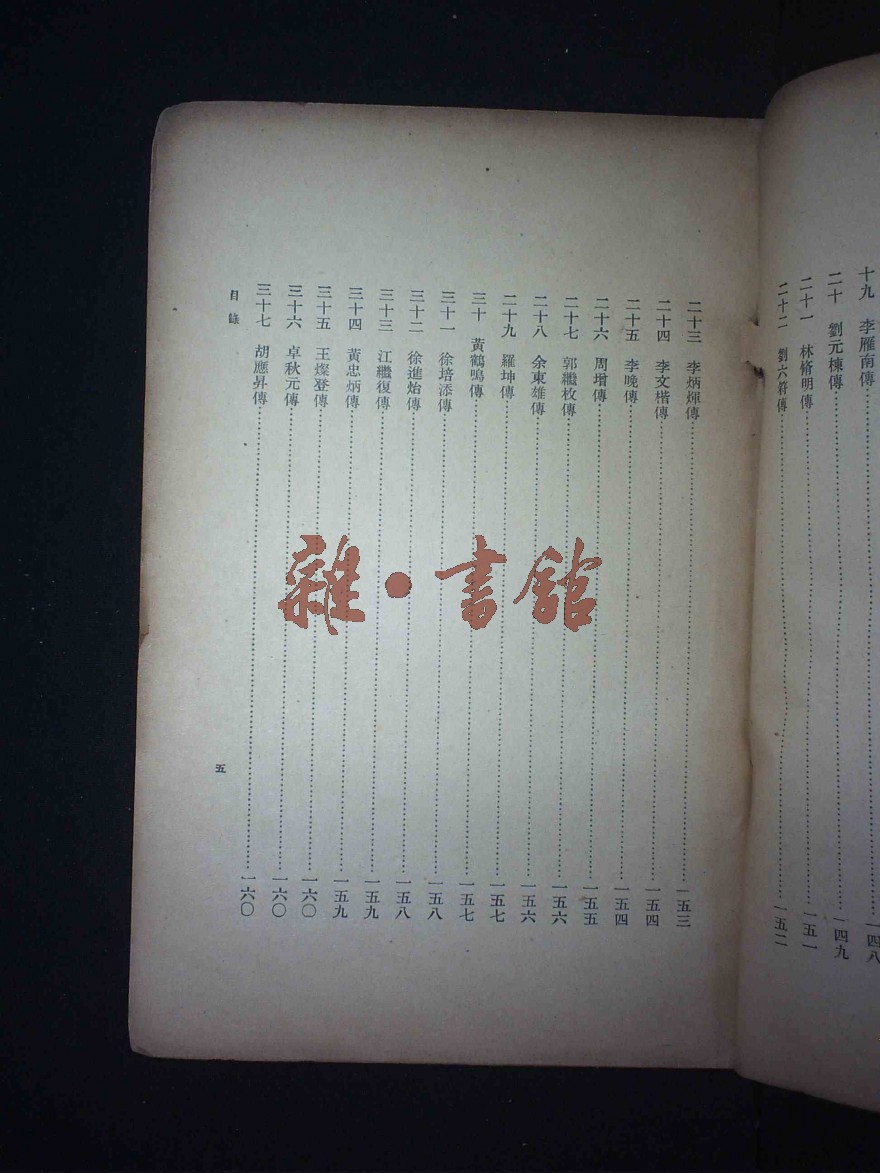 十九 李雁南傳 一四八
二十 劉元棟傳 一四九
二十一 林脩明傳 一五一
二十二 劉六符傳 一五二
二十三 李炳煇傳 一五三
二十四 李文楷傳 一五四
二十五 李晚傳 一五四
二十六 周增傳 一五五
二十七 郭繼枚傳 一五六
二十八 余東雄傳 一五六
二十九 羅坤傳 一五七
三十 黃鶴鳴傳 一五七
三十一 徐培添傳 一五八
三十二 徐進炲傳 一五八
三十三 江繼復傳 一五九
三十四 黃忠炳傳 一五九
三十五 王燦登傳 一六〇
三十六 卓秋元傳 一六〇
三十七 胡應昇傳 一六〇
目錄
五
雜·書館